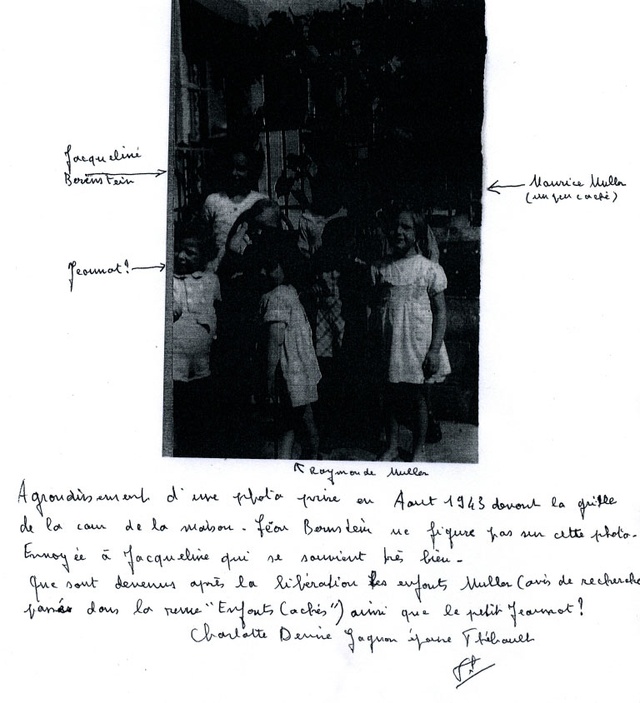 Jacqueline
Borenstein
Maurice Muller
(un peu caché)
Jeannot?
Raymonde Muller
Agrandissement d'une photo prise en Août 1943 devant la grille
de la cour de la maison. Jean Bornstein ne figure pas sur cette photo.
Envoyée à Jacqueline qui se souvient très bien.
Que sont devenus après la libération les enfants Muller (avis de recherche
passés dans la revue "Enfants Cachés") ainsi que le petit Jeannot?
Charlotte Denise Gagnon épouse Thébault